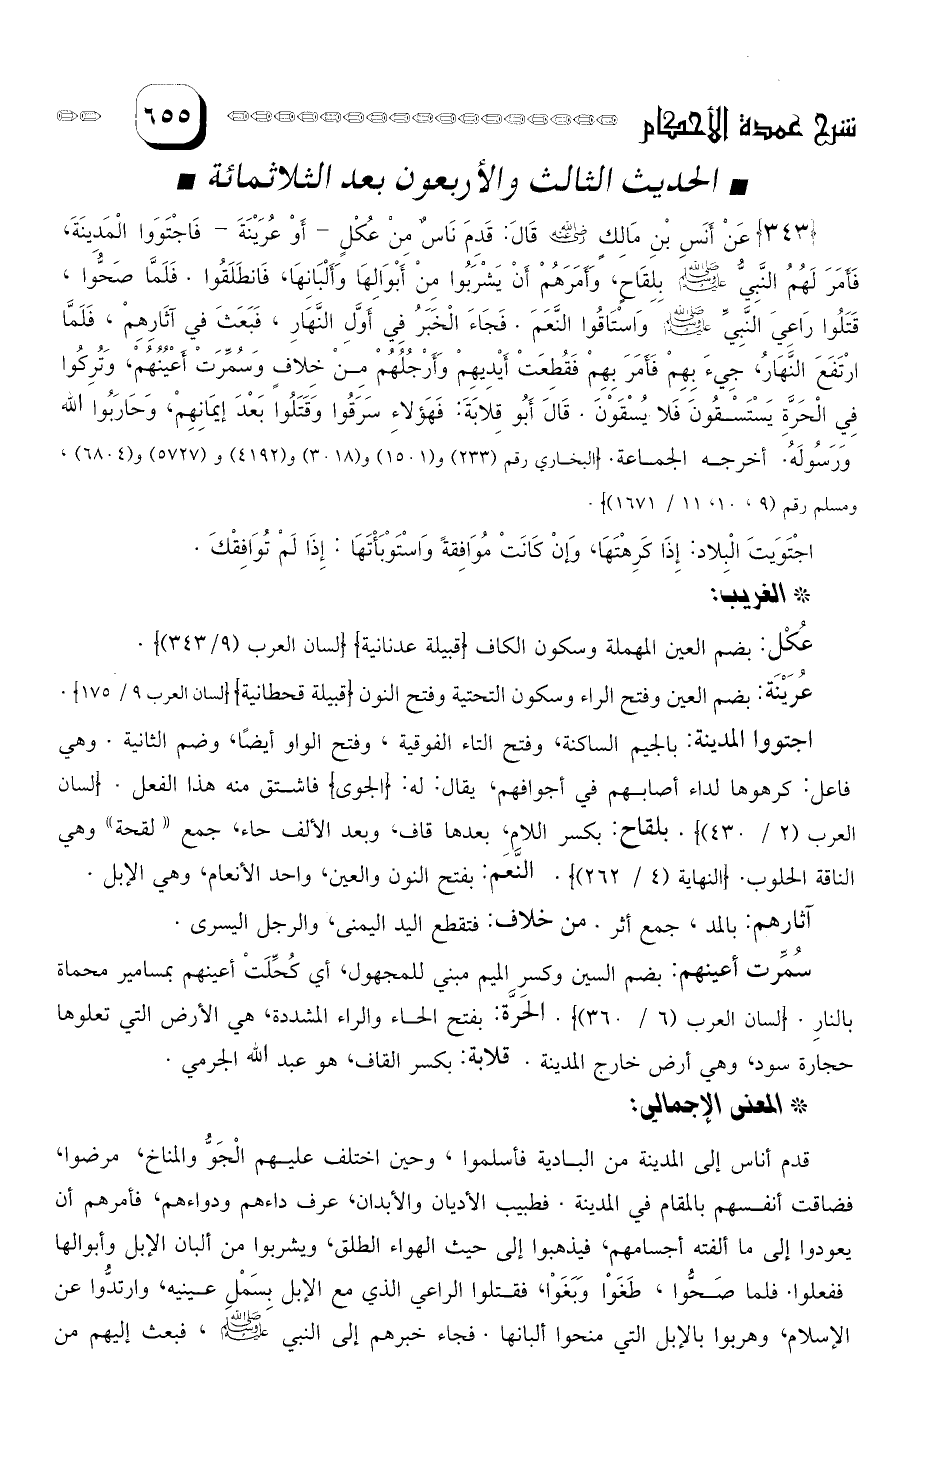 شرح عمدة الأحكام ٦٥٥
■ الحديث الثالث والأربعون بعد الثلاثمائة ■
{٣٤٣} عَنْ أَنَسِ بْنِ مَالِكٍ رضي الله عنه قَالَ: قَدِمَ نَاسٌ مِنْ عُكْلٍ – أَوْ عُرَيْنَةَ – فَاجْتَوَوا الْمَدِينَةَ،
فَأَمَرَ لَهُمُ النَّبِيُّ ﷺ بِلِقَاحٍ، وَأَمَرَهُمْ أَنْ يَشْرَبُوا مِنْ أَبْوَالِهَا وَأَلْبَانِهَا، فَانطَلَقُوا . فَلَمَّا صَحُّوا ،
قَتَلُوا رَاعِيَ النَّبِيِّ ﷺ وَاسْتَاقُوا النَّعَمَ . فَجَاءَ الْخَبَرُ فِي أَوَّلِ النَّهَارِ ، فَبَعَثَ فِي آثَارِهِمْ ، فَلَمَّا
ارْتَفَعَ النَّهَارُ، جِيءَ بِهِمْ فَأَمَرَ بِهِمْ فَقُطِعَتْ أَيْدِيهِمْ وَأَرْجُلُهُمْ مِنْ خِلافٍ وَسُمِّرَتْ أَعْيُنُهُمْ، وَتُرِكُوا
فِي الْحَرَّةِ يَسْتَسْقُونَ فَلا يُسْقَوْنَ . قَالَ أَبُو قِلابَةَ: فَهَؤُلاءِ سَرَقُوا وَقَتَلُوا بَعْدَ إِيمَانِهِمْ، وَحَارَبُوا الله
وَرَسُولَهُ. أخرجه الجماعة. {البخاري رقم (٢٣٣) و(١٥٠١) و(٣٠١٨) و(٤١٩٢) و (٥٧٢٧) و(٦٨٠٤) ،
ومسلم رقم (٩ ، ١٠، ١١ / ١٦٧١)} .
اجْتَوَيتَ الْبِلادَ: إِذَا كَرِهْتَهَا، وَإِنْ كَانَتْ مُوَافِقَةً وَاسْتَوْبَأْتَهَا : إِذَا لَمْ تُوَافِقْكَ .
* الغريب:
عُكْل: بضم العين المهملة وسكون الكاف {قبيلة عدنانية} {لسان العرب (٣٤٣/٩)} .
عُرَيْنَة: بضم العين وفتح الراء وسكون التحتية وفتح النون {قبيلة قحطانية} {لسان العرب ٩ / ١٧٥} .
اجتووا المدينة: بالجيم الساكنة، وفتح التاء الفوقية ، وفتح الواو أيضًا، وضم الثانية . وهي
فاعل: كرهوها لداء أصابهم في أجوافهم، يقال: له: {الجوى} فاشتق منه هذا الفعل . {لسان
العرب (٢ / ٤٣٠)} . بلِقاح: بكسر اللام، بعدها قاف، وبعد الألف حاء، جمع « لقحة» وهي
الناقة الحلوب. {النهاية (٤ / ٢٦٢)} . النَّعَم: بفتح النون والعين، واحد الأنعام، وهي الإبل .
آثارهم: بالمد ، جمع أثر . من خلاف: فتقطع اليد اليمنى، والرجل اليسرى .
سُمِّرت أعينهم: بضم السين وكسر الميم مبني للمجهول، أي كُحِّلَتْ أعينهم بمسامير محماة
بالنارِ . {لسان العرب (٦ / ٣٦٠)} . الحَرَّة: بفتح الحاء والراء المشددة، هي الأرض التي تعلوها
حجارة سود، وهي أرض خارج المدينة . قلابة: بكسر القاف، هو عبد الله الجرمي .
* المعنى الإجمالي:
قدم أناس إلى المدينة من البادية فأسلموا ، وحين اختلف عليهم الْجَوُّ والمناخ، مرضوا،
فضاقت أنفسهم بالمقام في المدينة . فطبيب الأديان والأبدان، عرف داءهم ودواءهم، فأمرهم أن
يعودوا إلى ما ألفته أجسامهم، فيذهبوا إلى حيث الهواء الطلق، ويشربوا من ألبان الإبل وأبوالها
ففعلوا. فلما صَحُّوا ، طَغَوْا وبَغَوْا، فقتلوا الراعي الذي مع الإبل بِسَمْلِ عينيه، وارتدُّوا عن
الإسلام، وهربوا بالإبل التي منحوا ألبانها . فجاء خبرهم إلى النبي ﷺ ، فبعث إليهم من